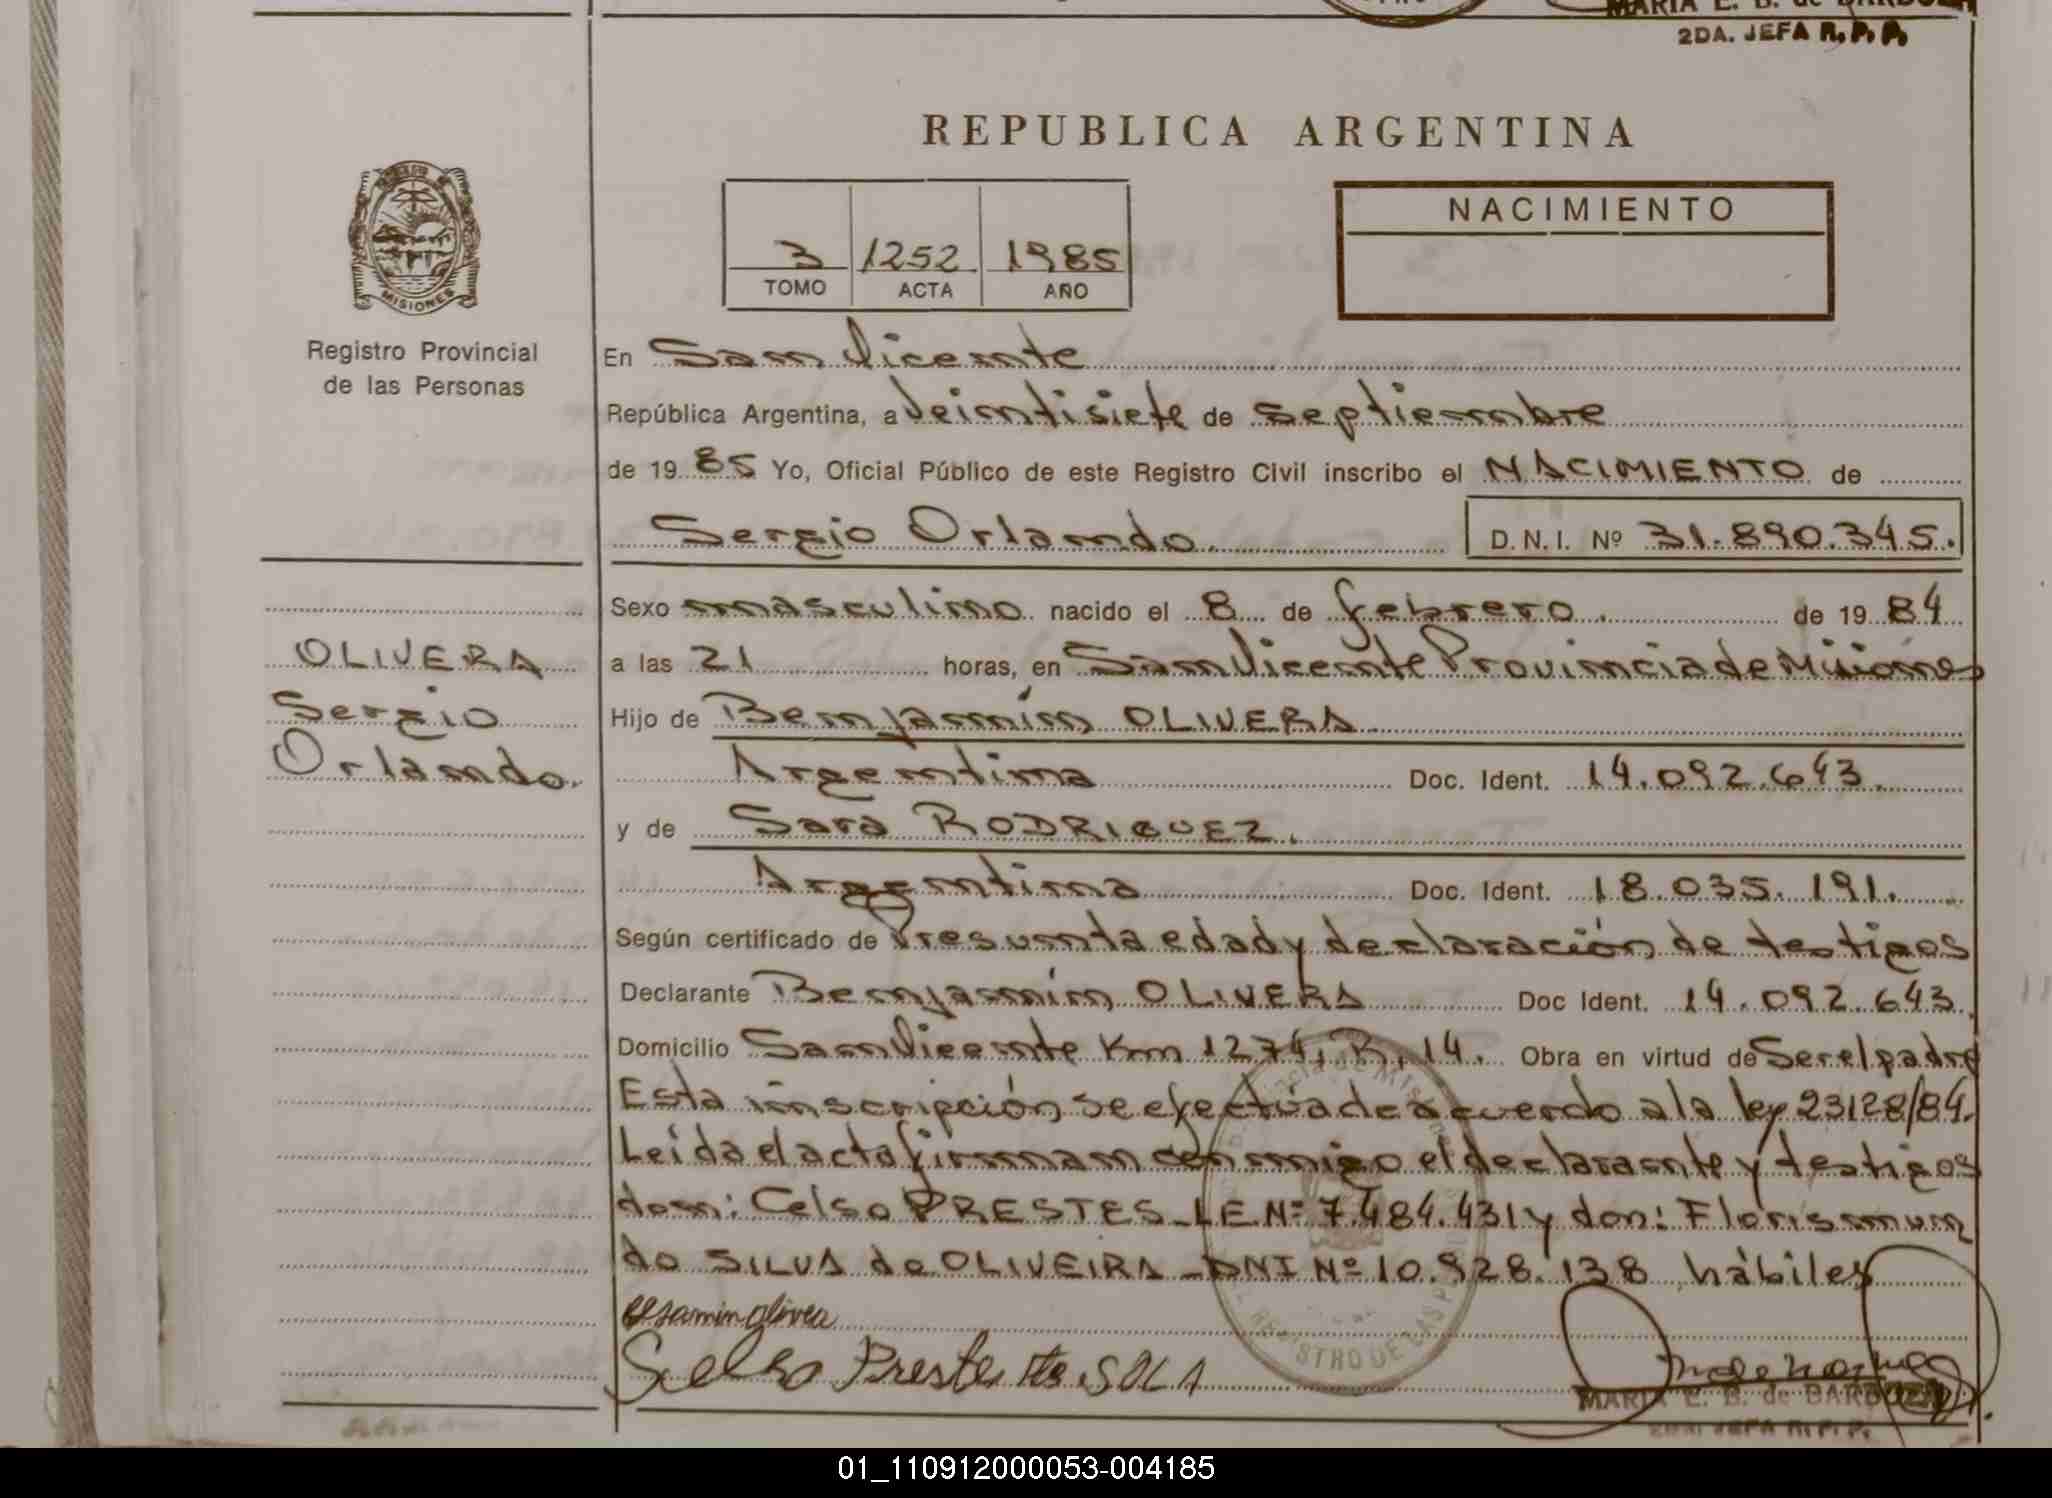 MARIA E. B. de BARBOZA
2DA. JEFA R. P. P.
REPUBLICA ARGENTINA
NACIMIENTO
3 1252 1985
TOMO ACTA AÑO
MISIONES
Registro Provincial
de las Personas
En San Vicente
República Argentina, a Veintisiete de Septiembre
de 19 85 Yo, Oficial Público de este Registro Civil inscribo el NACIMIENTO de
Sergio Orlando D.N.I. Nº 31.890.345.
Sexo masculino nacido el 8 de febrero de 19 84
OLIVERA
a las 21 horas, en San Vicente Provincia de Misiones
Sergio
Hijo de Benjamín OLIVERA
Orlando.
Argentina Doc. Ident. 14.092.643.
y de Sara RODRIGUEZ.
Argentina Doc. Ident. 18.035.191.
Según certificado de Presunta edad y declaración de testigos
Declarante Benjamín OLIVERA Doc Ident. 14.092.643.
Domicilio San Vicente Km 1274, R. 14. Obra en virtud de Ser el padre
Esta inscripción se efectúa de acuerdo a la ley 23128/84.
Leída el acta firman conmigo el declarante y testigos
don: Celso PRESTES - LE Nº 7.484.431 y don: Florismun
do SILVA de OLIVEIRA - DNI Nº 10.928.138 hábiles
REGISTRO DE LAS
MARIA E. B. de BARBOZA
2DA. JEFA R. P. P.
01_110912000053-004185